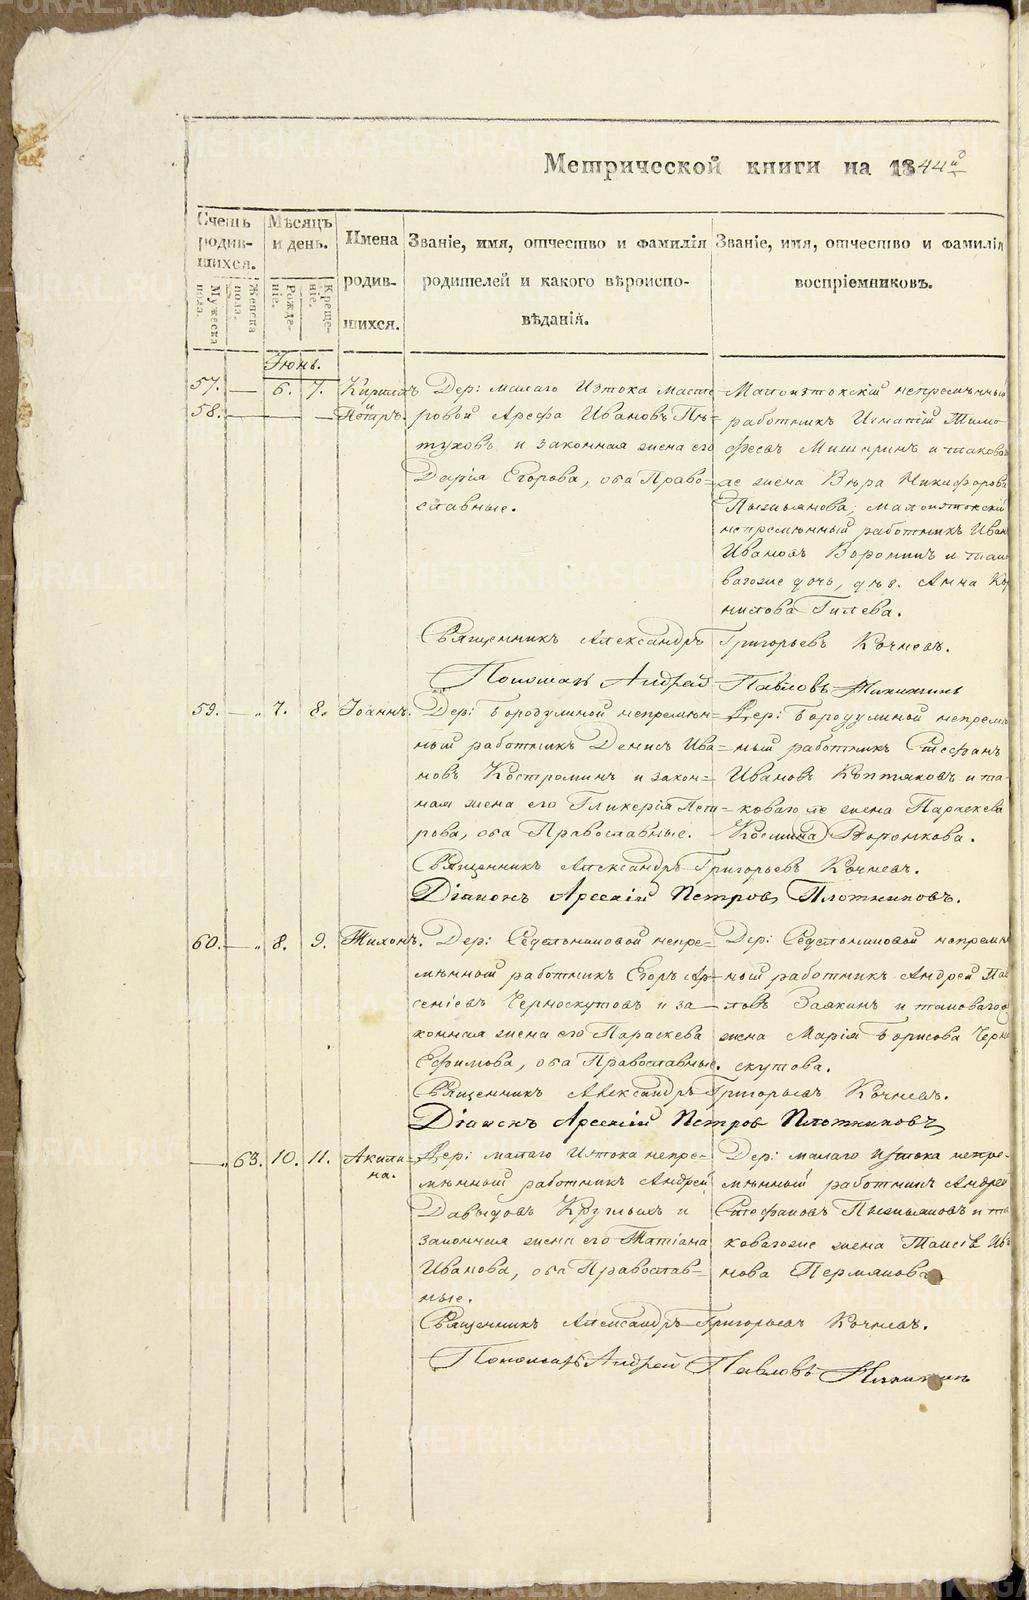 Метрической книги на 1844й
Счетъ родив- шихся.
Мѣсяцъ и день.
Имена родив- шихся.
Званіе, имя, отчество и фамилія родителей и какого вѣроиспо- вѣданія.
Званіе, имя, отчество и фамилія воспріемниковъ.
Мужеска пола.
Женска пола.
Рожде- ніе.
Креще- ніе.
Іюнь.
57. — 6. 7. Кириллъ
58. — и Петръ.
Дер: малаго Изтока масте-
ровой Арефа Ивановъ Пѣ-
туховъ и законная жена его
Дарія Егорова, оба Право-
славные.
Малоизтокскій непремѣнный
работникъ Игнатій Тимо-
феевъ Мишаринъ и таковаго
же жена Вѣра Никифорова
Пызьянова; малоизтокскій
непремѣнный работникъ Иван
Ивановъ Воронинъ и тако
вагоже дочь, дѣв. Анна Кор
нилова Гилева.
Священникъ Александръ Григорьевъ Кочневъ.
Пономарь Андрей Павловъ Никитинъ
59. — „ 7. 8. Іоаннъ.
Дер: Бородулиной непремѣн-
ный работникъ Денисъ Ива-
новъ Костроминъ и закон-
ная жена его Гликерія Пет-
рова, оба Православные.
Дер: Бородулиной непремѣн
ный работникъ Стефанъ
Ивановъ Коптяковъ и та-
коваго же жена Параскева
Космина Воронкова.
Священникъ Александръ Григорьевъ Кочневъ.
Діаконъ Арсеній Петровъ Плотниковъ.
60. — „ 8. 9. Тихонъ.
Дер: Седельниковой непре-
мѣнный работникъ Егоръ Ар-
сеніевъ Черноскутовъ и за-
конная жена его Параскева
Ефимова, оба Православные.
Дер: Седельниковой непремѣн
ный работникъ Андрей Пав
ловъ Заякинъ и таковагоже
жена Марія Борисова Черно
скутова.
Священникъ Александръ Григорьевъ Кочневъ.
Діаконъ Арсеній Петровъ Плотниковъ
— „ 63. 10. 11. Акили-
на.
Дер: малаго Изтока непре-
мѣнный работникъ Андрей
Давыдовъ Круглыхъ и
законная жена его Татіана
Иванова, оба Православ-
ные.
Дер: малаго Изтока непре-
мѣнный работникъ Андрей
Стефановъ Пызьяновъ и та
ковагоже жена Таисія Ива
нова Пермякова
Священникъ Александръ Григорьевъ Кочневъ.
Пономарь Андрей Павловъ Никитинъ